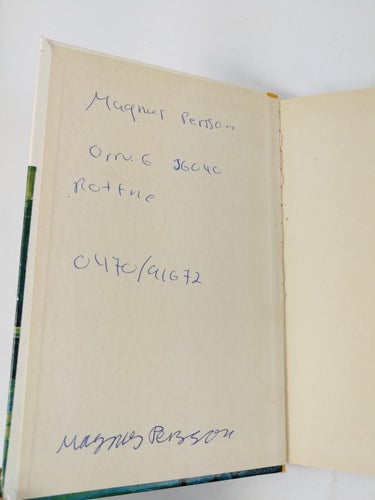 Magnus Persson
Orrv. 6 36040
Rottne
0470/91672
Magnus Persson